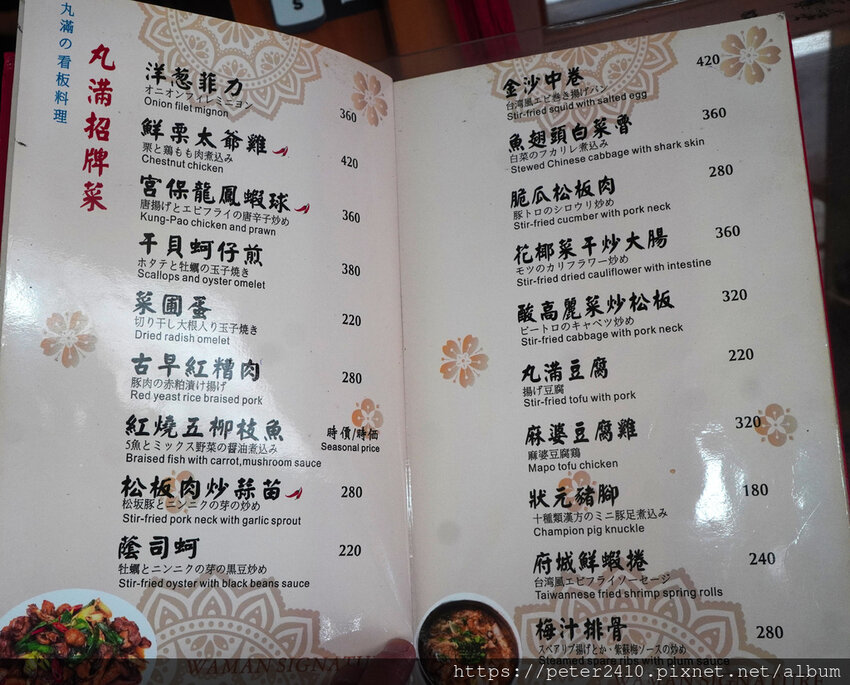 丸滿の看板料理
丸滿招牌菜
洋蔥菲力
オニオンフィレミニヨン
Onion filet mignon
360
鮮栗太爺雞
栗と鶏もも肉煮込み
Chestnut chicken
420
宮保龍鳳蝦球
唐揚げとエビフライの唐辛子炒め
Kung-Pao chicken and prawn
360
干貝蚵仔煎
ホタテと牡蠣の玉子焼き
Scallops and oyster omelet
380
菜圃蛋
切り干し大根入り玉子焼き
Dried radish omelet
220
古早紅糟肉
豚肉の赤粕漬け揚げ
Red yeast rice braised pork
280
紅燒五柳枝魚
5魚とミックス野菜の醤油煮込み
Braised fish with carrot,mushroom sauce
時價/時価
Seasonal price
松板肉炒蒜苗
松坂豚とニンニクの芽の炒め
Stir-fried pork neck with garlic sprout
280
蔭司蚵
牡蠣とニンニクの芽の黒豆炒め
Stir-fried oyster with black beans sauce
220
WAMAN SIGNATU
金沙中卷
台湾風エビ巻き揚げパン
Stir-fried squid with salted egg
420
魚翅頭白菜魯
白菜のフカリレ煮込み
Stewed Chinese cabbage with shark skin
360
脆瓜松板肉
豚トロのシロウリ炒め
Stir-fried cucmber with pork neck
280
花椰菜干炒大腸
モツのカリフラワー炒め
Stir-fried dried cauliflower with intestine
360
酸高麗菜炒松板
ピートロのキャベツ炒め
Stir-fried cabbage with pork neck
320
丸滿豆腐
揚げ豆腐
Stir-fried tofu with pork
220
麻婆豆腐雞
麻婆豆腐鶏
Mapo tofu chicken
320
狀元豬腳
十種類漢方のミニ豚足煮込み
Champion pig knuckle
180
府城鮮蝦捲
台湾風エビフライソーセージ
Taiwannese fried shrimp spring rolls
240
梅汁排骨
スペアリブ揚げとか・紫蘇梅ソースの炒め
Steamed spare ribs with plum sauce
280
https://peter2410.pixnet.net/album